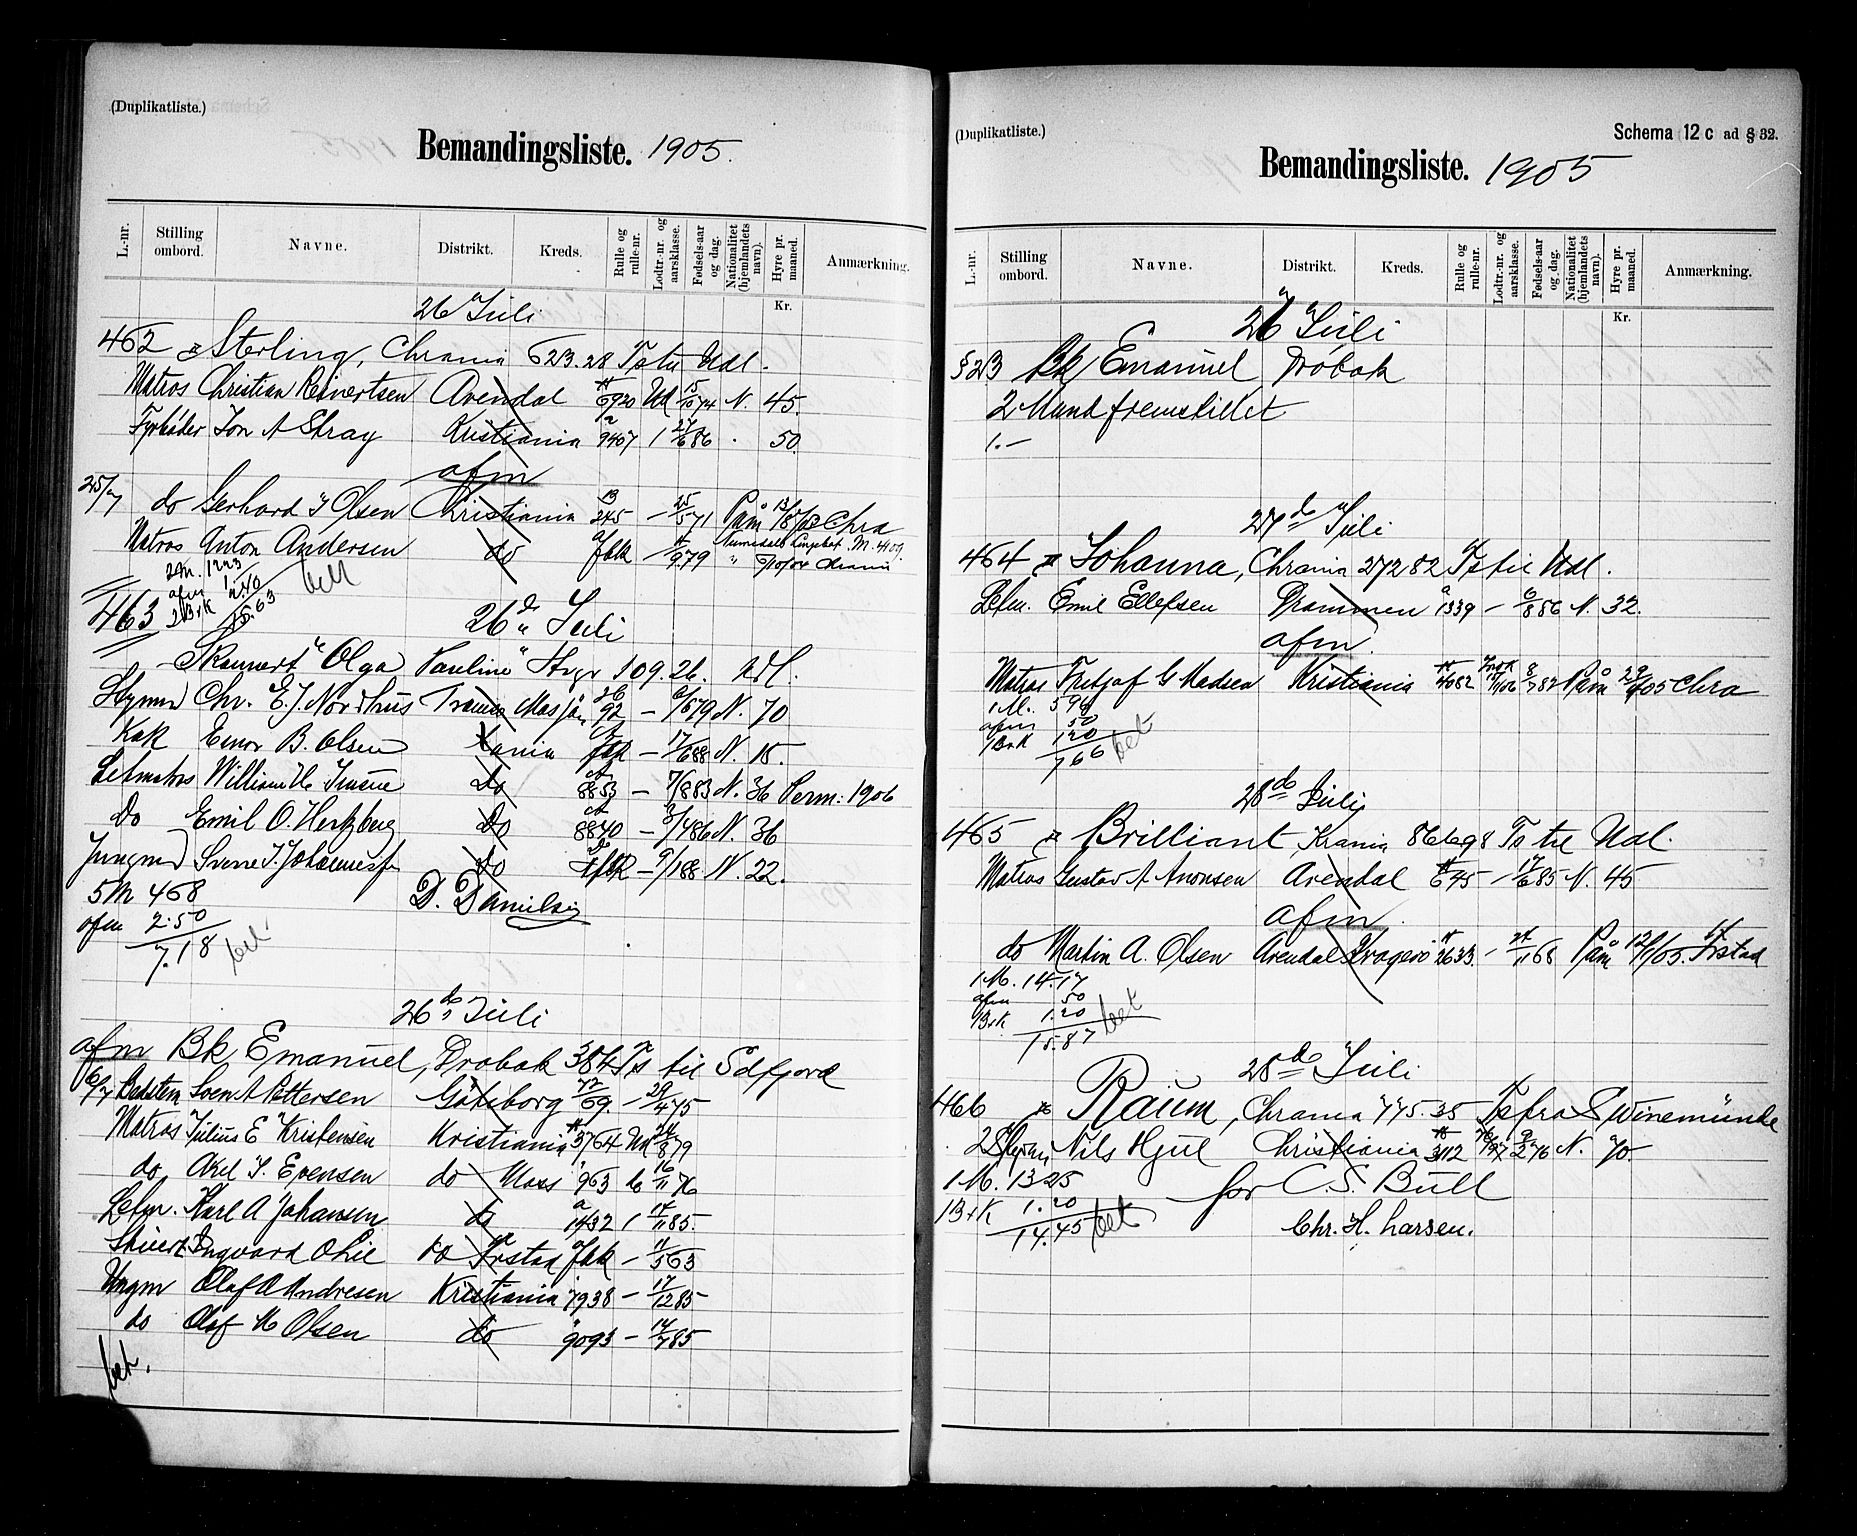 (Duplikatliste.)
Bemandingsliste. 1905.
L.-nr. Stilling ombord. Navne. Distrikt. Kreds. Rulle og rulle-nr. Lodtr.-nr. og aarsklasse. Fødsels-aar og dag. Nationalitet (hjemlandets navn). Hyre pr. maaned. Anmærkning.
Kr.
26 Juli
462 Sterling, Chrania 623.28 Ts til Udl.
Matros Christian Reinertsen Arendal 6920 Ud 15/10 74 N. 45.
Fyrbøder Jon A Stray Kristiania 9407 1 27/6 86 . 50.
afm
25/7 do Gerhard J Olsen Kristiania 245 — 25/5 71 Paam 13/8 03 Chra
Matros Anton Andersen do fblk 979
2M. 1223
afm 1.
2Brk 2.40
15.63
bet
463 26 d. Juli
Skonnert "Olga Pauline" Hvgr 109.26. Udl.
Styrmd Chr. E. J. Nordhus Trømsø Masfjo 92 — 6/6 79 N. 70
Kok Einar B. Olsen Xania fblk — 17/6 88 N. 15.
Letmatros William H. do 8853 — 7/8 83 N. 36 Perm: 1906
Do Emil O. Hertzberg Do 8840 — 3/4 86 N. 36
Jungmd Svene J. Johannesf do fblk — 9/1 88 N. 22.
5M 468 D. Danielsen
afm 2.50
7.18 bet.
26 do Juli
afm Bk Emanuel, Drøbak 384 Ts til Sdfjord
6/7 Bedstem Sven A Pettersen Göteborg 72/69. — 29/4 75
Matros Julius E Kristensen Kristiania 3764 Ud 24/8 79
do Axel J. Evensen do Moss 963 do 16/11 76
Letm. Karl A Johansen do 1432 1 14/11 85.
Stuert Ingvard Ohie do Frstad fblk — 11/5 63
Ungm Olaf A Andresen Kristiania 7938 — 17/12 85
do Olaf M Olsen do 9093 — 14/7 85
bet.
(Duplikatliste.)
Schema 12 c ad § 32.
Bemandingsliste. 1905
L.-nr. Stilling ombord. Navne. Distrikt. Kreds. Rulle og rulle-nr. Lodtr.-nr. og aarsklasse. Fødsels-aar og dag. Nationalitet (hjemlandets navn). Hyre pr. maaned. Anmærkning.
Kr.
26 Juli
§ 23 Bk Emanuel Drøbak
2 Mand fremstillet
1.—
27 de Juli
464 Johanna, Chrania 272.82 Ts til Udl.
Letm. Emil Ellefsen Drammen 1339 — 6/8 86 N. 32.
afm.
Matros Fritjof G Madsen Kristiania 4082 8/7 82 Paam 29/4 05 Chra
1 M. 596
afm 50
1Brk 120
766 bet
28 de Juli
465 Brilliant, Krania 866.98 Ts til Udl.
Matros Gustav A Aronsen Arendal 645 — 17/6 85 N. 45
afm.
do Martin A. Olsen Arendal Kragerø 2633. — 24/11 68 Paam 12/1 05. Frstad
1M. 14.17
afm 50
1Brk 1.20
15.87 bet
28 de Juli
466 Raum, Chrania 775.35 Ts fra Swinemünde
2 Styrm, Nils Hjul Christiania 3112 9/2 76 N. 70.
1M. 1325
1Brk 1.20
14.45 bet
for C. S. Bull
Chr. H. Larsen.